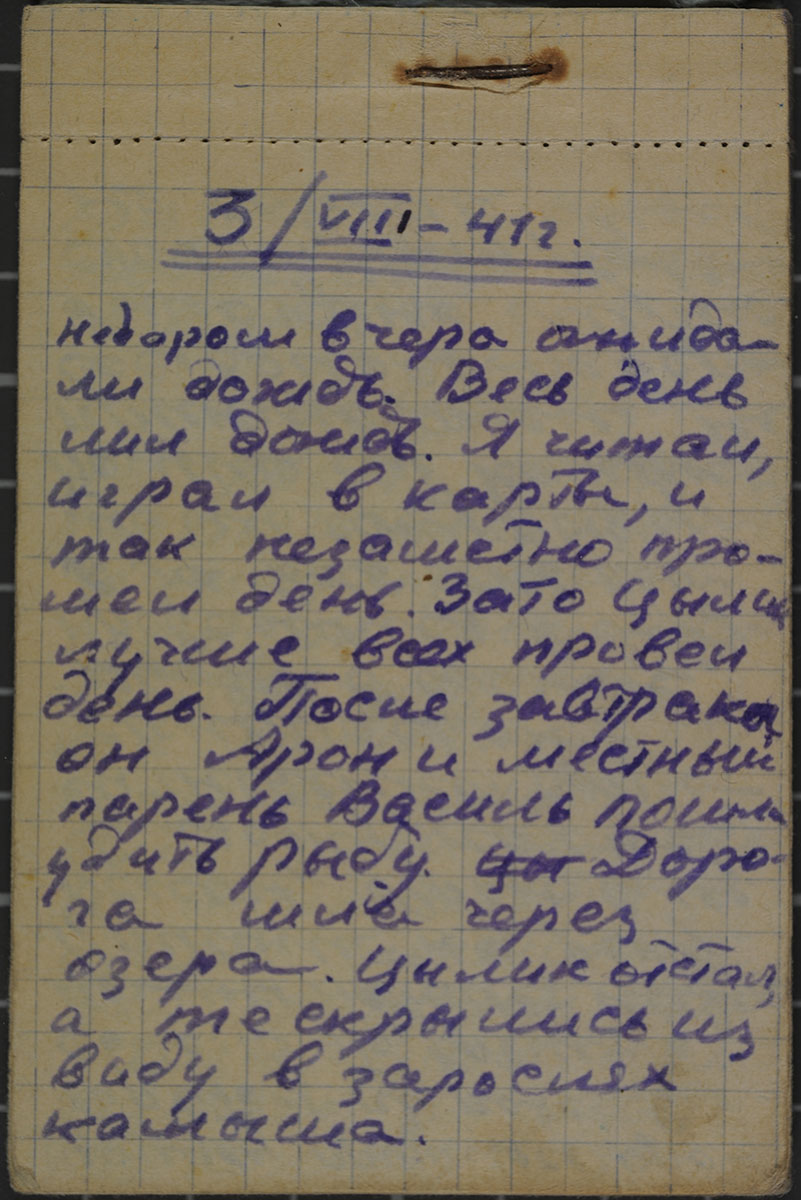 3/VIII-41г.
недаром вчера ожида-
ли дождь. Весь день
лил дождь. Я читал,
играл в карты, и
так незаметно про-
шел день. Зато Цылик
лучше всех провел
день. После завтрака
он Арон и местный
парень Василь пошли
удить рыбу. цы Доро-
га шла через
озера. Цылик отстал,
а те скрылись из
виду в зарослях
камыша.